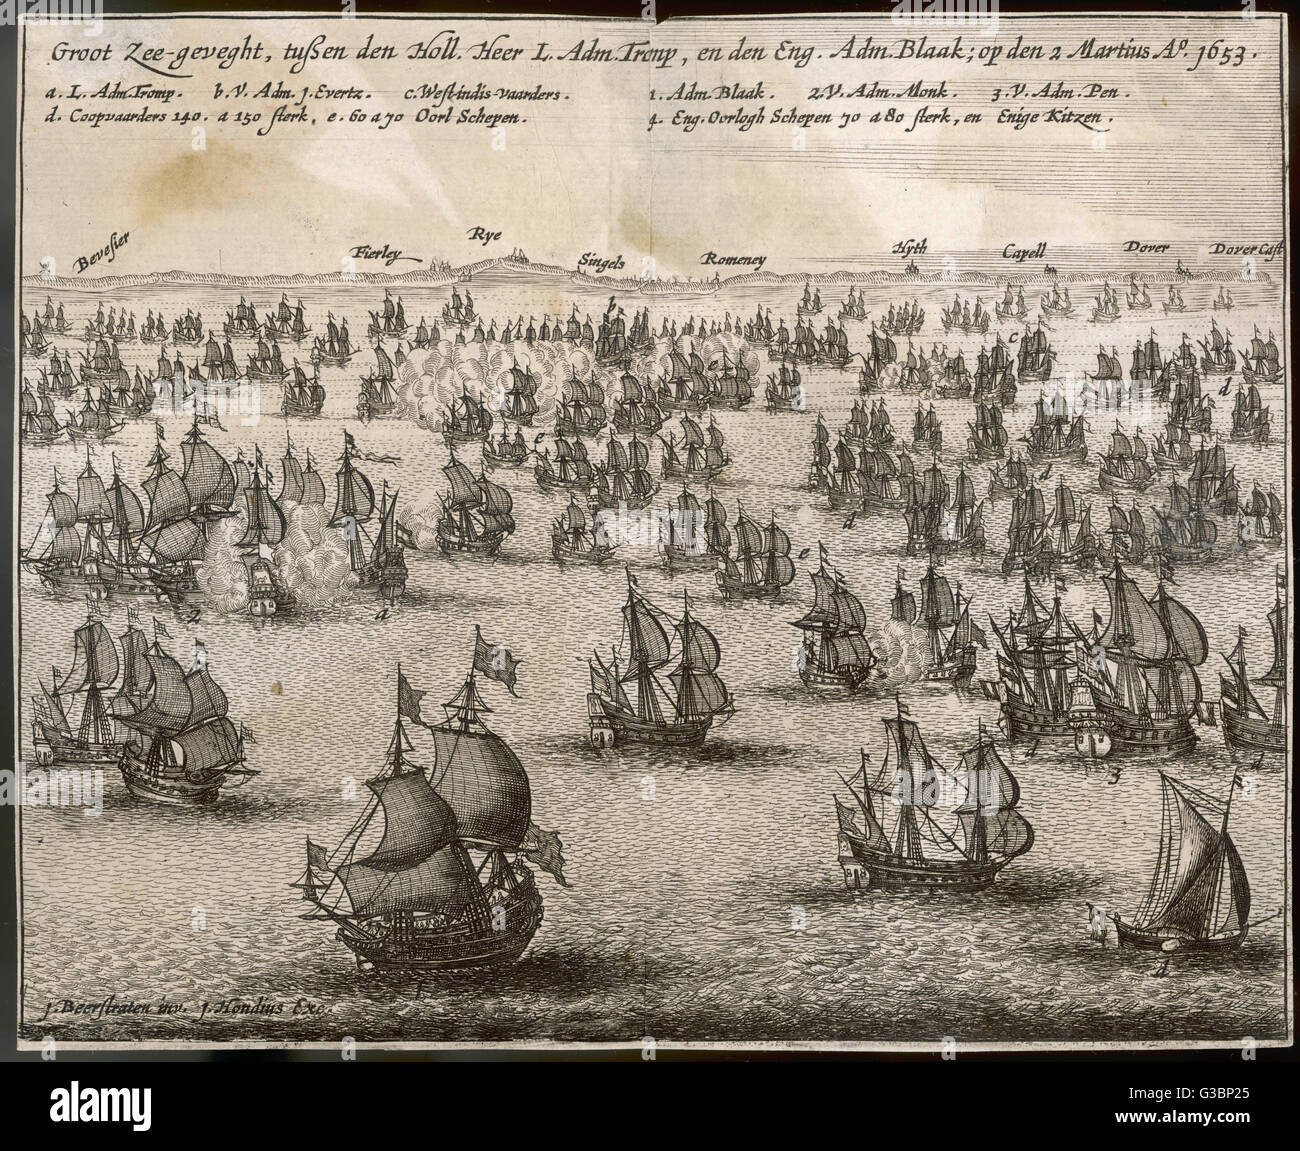 Groot Zee-geveght, tußen den Holl. Heer L. Adm. Tromp, en den Eng. Adm. Blaak; op den 2 Martius Aº. 1653.
a. L. Adm. Tromp. b. V. Adm. j. Evertz. c. West-indis-vaarders. 1. Adm. Blaak. 2. V. Adm. Monk. 3. V. Adm. Pen.
d. Coopvaarders 140. a 150 sterk, e. 60 a 70 Oorl Schepen. 4. Eng. Oorlogh Schepen 70 a 80 sterk, en Enige Kitzen.
Bevesier Fierley Rye Singels Romeney Hyth Capell Dover Dover Cast
b
c
e
d
e
d
d
e
2 a
d 3 d
d
1
j. Beerstraten inv. j. Hondius Exc.
alamy
Image ID: G3BP25
www.alamy.com